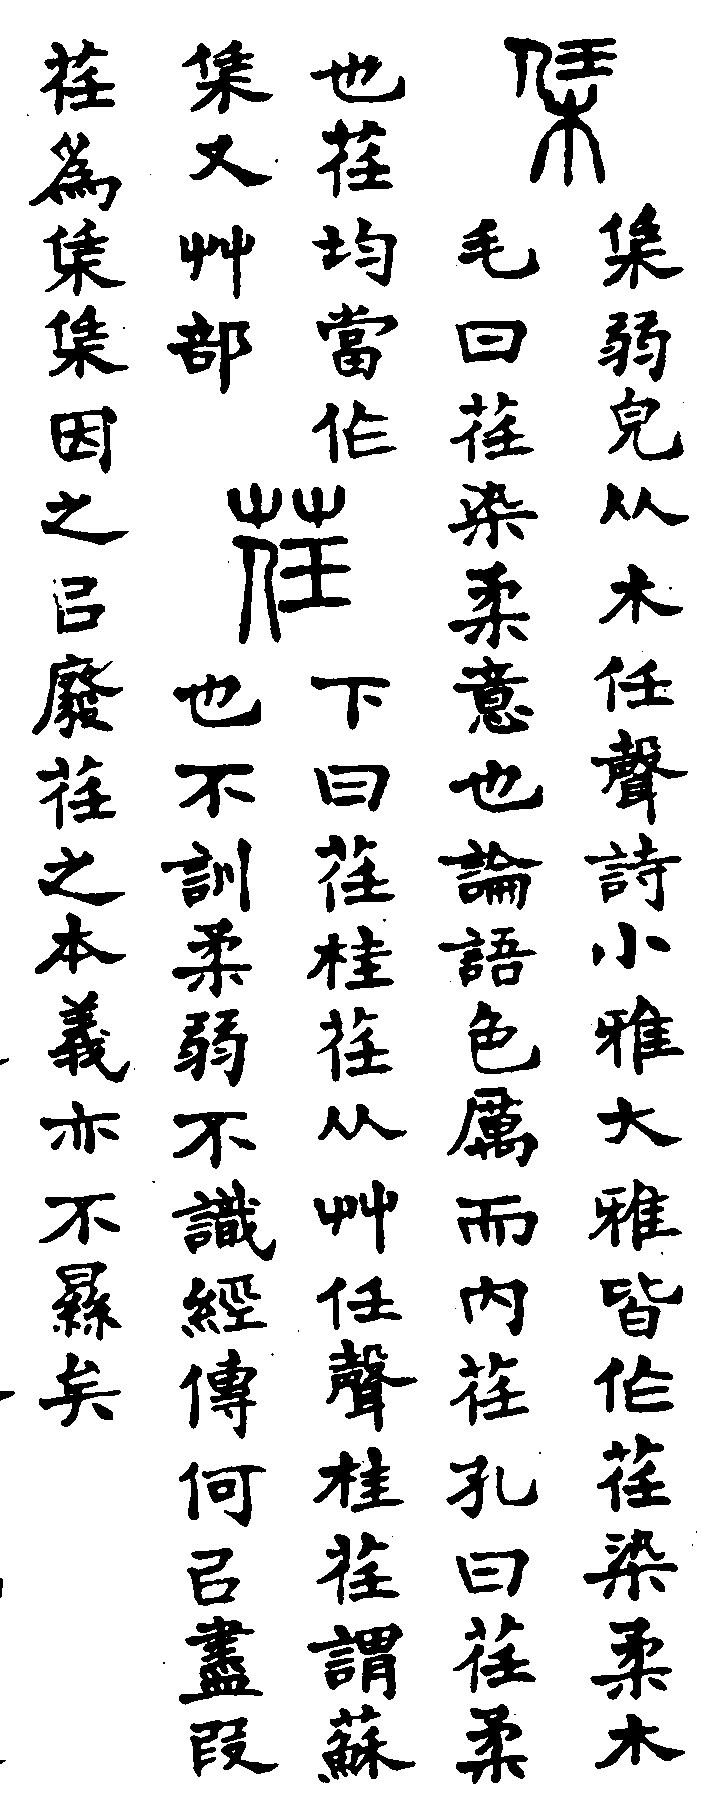 栠
栠弱皃从木任聲詩小雅大雅皆作荏染柔木
毛曰荏染柔意也論語色厲而內荏孔曰荏柔
也荏均當作
栠又艸部
荏
下曰荏桂荏从艸任聲桂荏謂蘇
也不訓柔弱不識經傳何㠯盡叚
荏爲栠栠因之㠯廢荏之本義亦不㬎矣